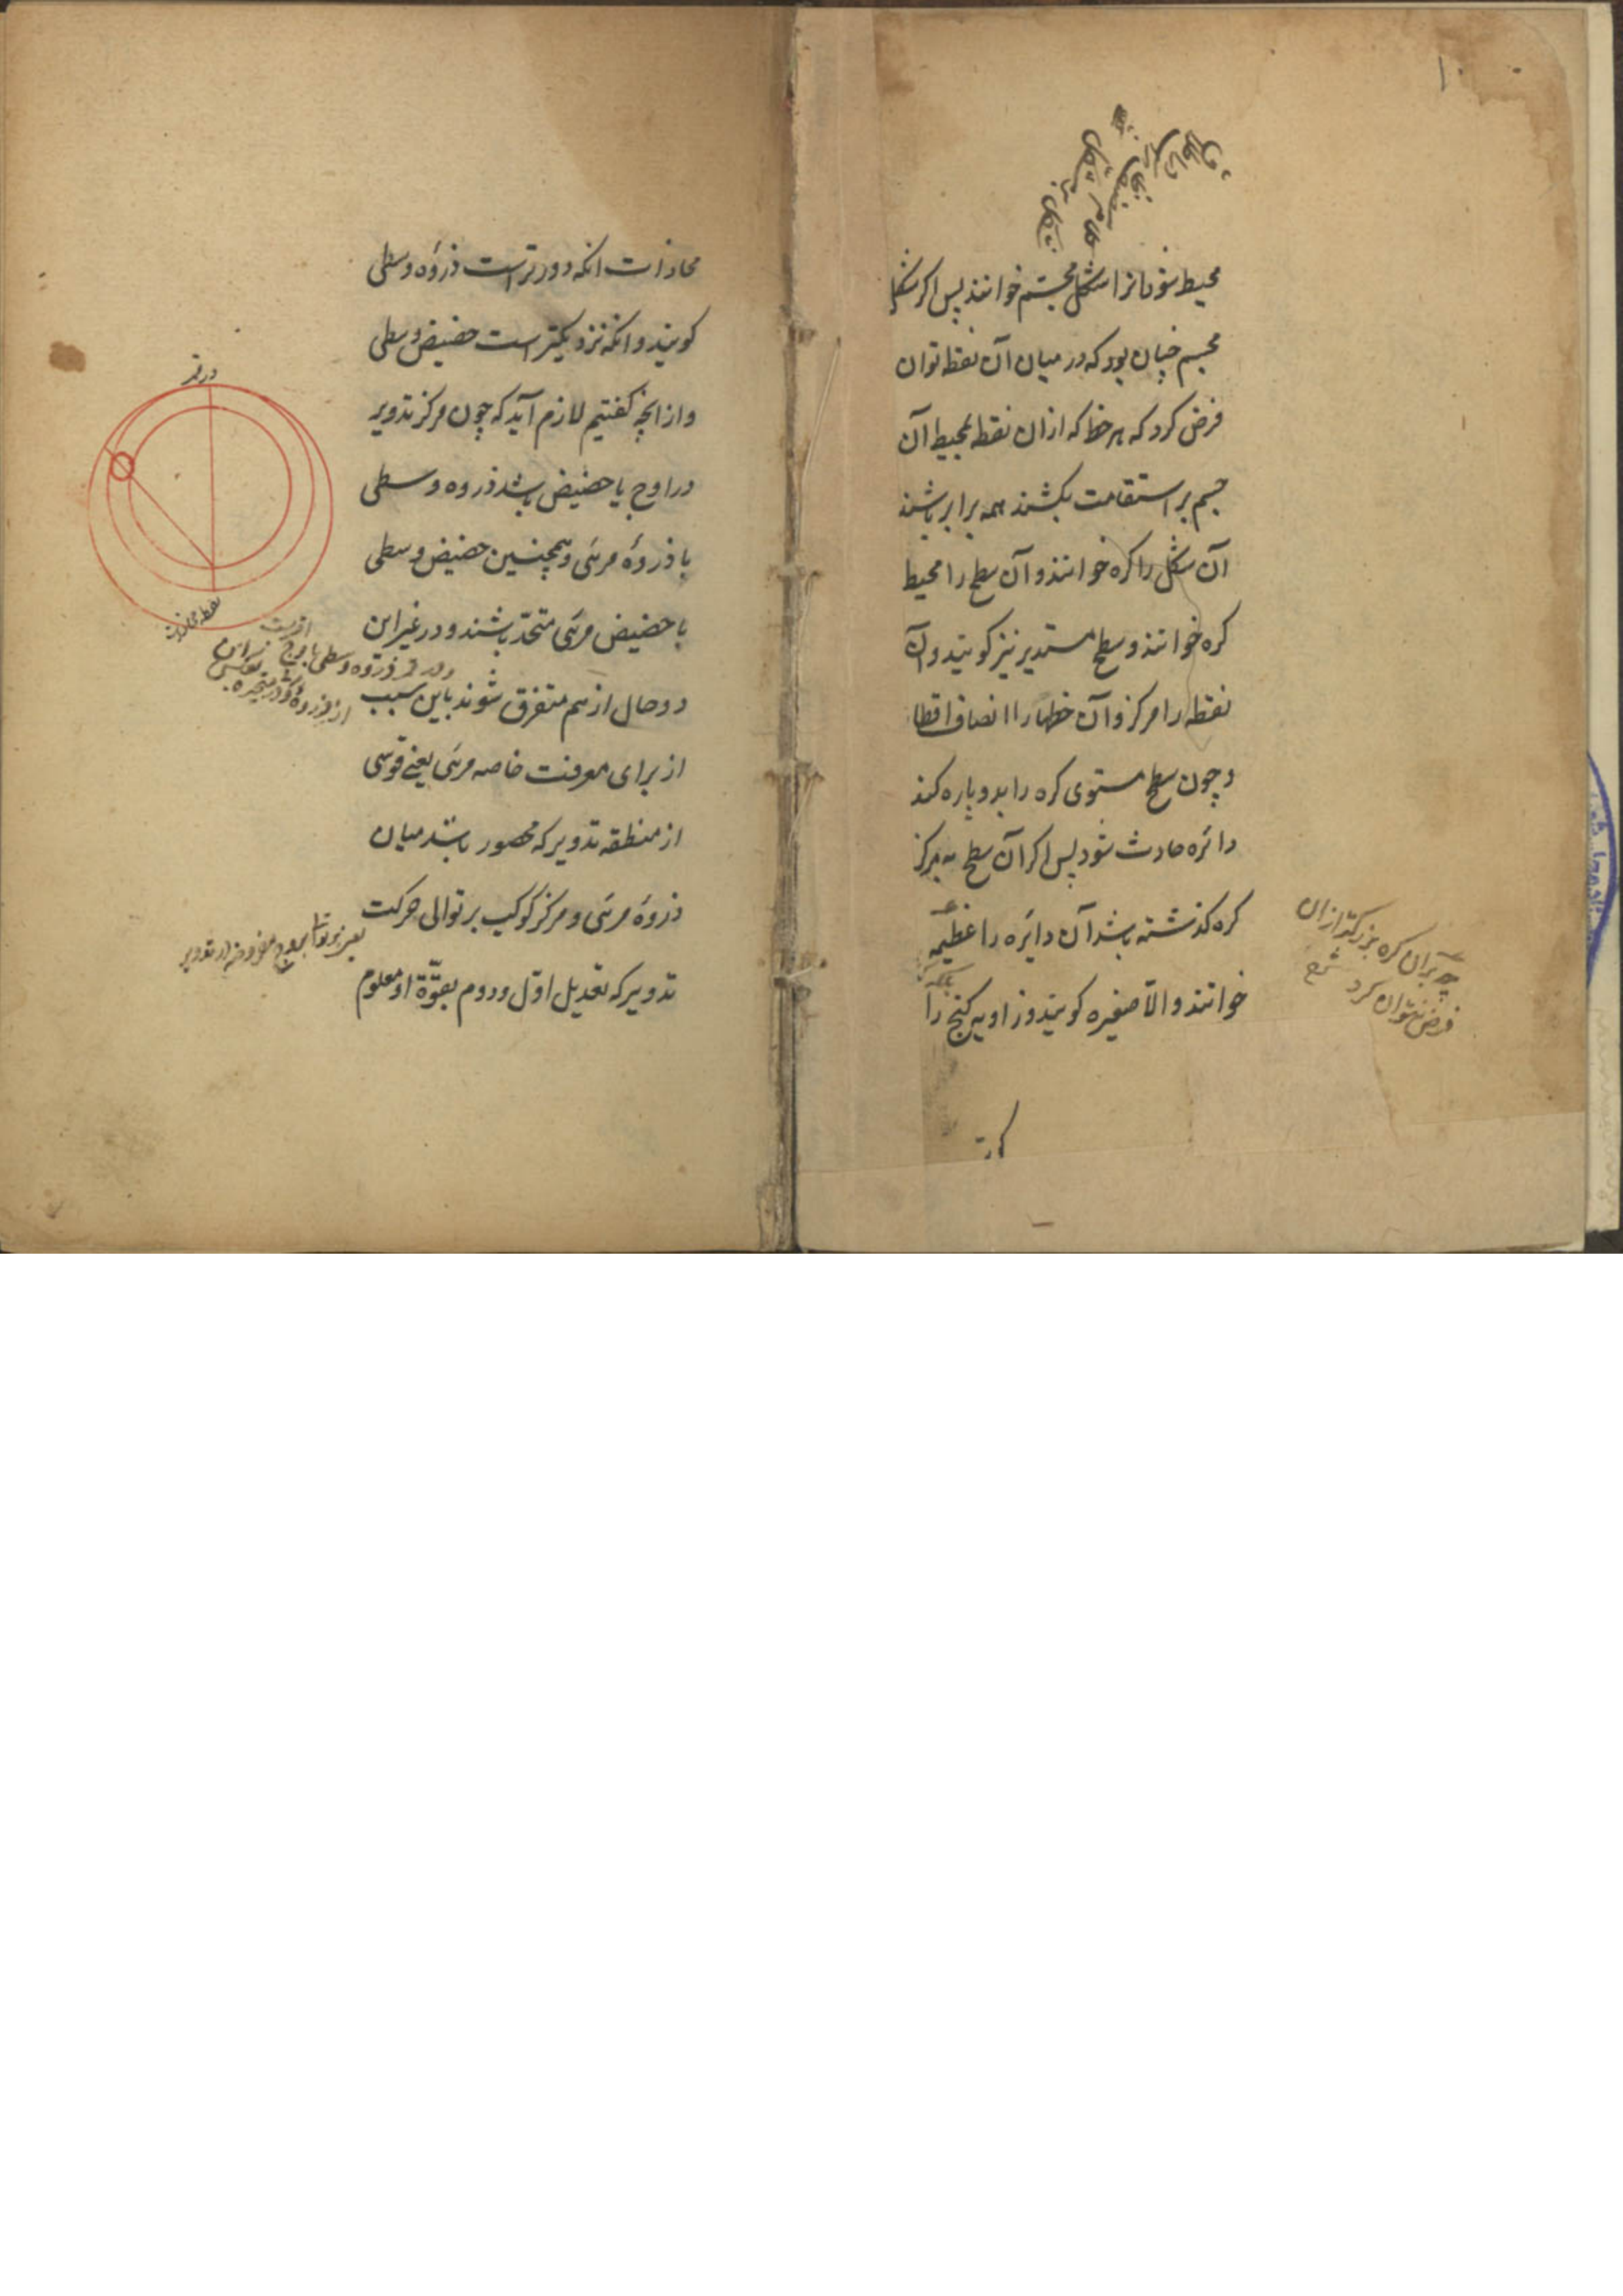 محیط شود انرا شکل مجسّم خوانند پس اکر شکل
مجسم چنان بود که در میان آن نقطه توان
فرض کرد که هر خط که ازان نقطه بمحیط آن
جسم بر استقامت بکشند همه برابر باشند
آن شکل را کره خوانند و آن سطح را محیط
کره خوانند و سطح مستدیر نیز کویند و آن
نقطه را مرکز و آن خطها را انصاف اقطار
و چون سطح مستوی کره را بدو پاره کند
دائره حادث شود پس اکر آن سطح بمرکز
کره کذشته باشد آن دایره را عظیمه
خوانند والّا صغیره کویند و زاویه کنج را
چه بران کره بزرکتر ازان
فرض نتوان کرد شرح
محاذات انکه دورتر است ذروۀ وسطی
کویند و انکه نزدیکتر است حضیض وسطی
و از انچه کفتیم لازم آید که چون مرکز تدویر
در اوج یا حضیض باشد ذروه وسطی
با ذروۀ مرئی و همچنین حضیض وسطی
با حضیض مرئی متحد باشند و در غیر این
دو حال از هم متفرق شوند باین سبب
از برای معرفت خاصه مرئی یعنی قوسی
از منطقه تدویر که محصور باشد میان
ذروۀ مرئی و مرکز کوکب بر توالی حرکت
تدویر که تعدیل اوّل و دوم بقوّة او معلوم
در قمر
نقطه محاذات